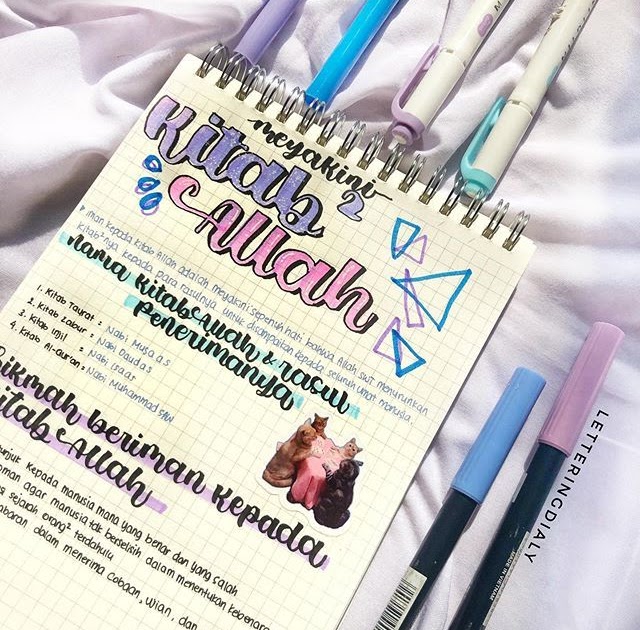 meyakini
Kitab 2
Allah
iman kepada kitab Allah adalah meyakini sepenuh hati bahwa Allah swt menurunkan
kitab²nya kepada para rasulnya untuk disampaikan kepada seluruh umat manusia.
nama kitab
Penerimanya
rasul
1. Kitab Taurat : Nabi Musa a.s
2. Kitab Zabur : Nabi Daud a.s
3. Kitab Injil : Nabi Isa a.s
4. Kitab Al-Qur'an : Nabi Muhammad SAW
hikmah beriman kepada
kitab Allah
kepada manusia mana yang benar dan yang salah
agar manusia tdk berselisih dalam menentukan
sejarah orang² terdahulu
dalam menerima cobaan, ujian, dan
LETTERINGDIALY
MADE IN VIETNAM